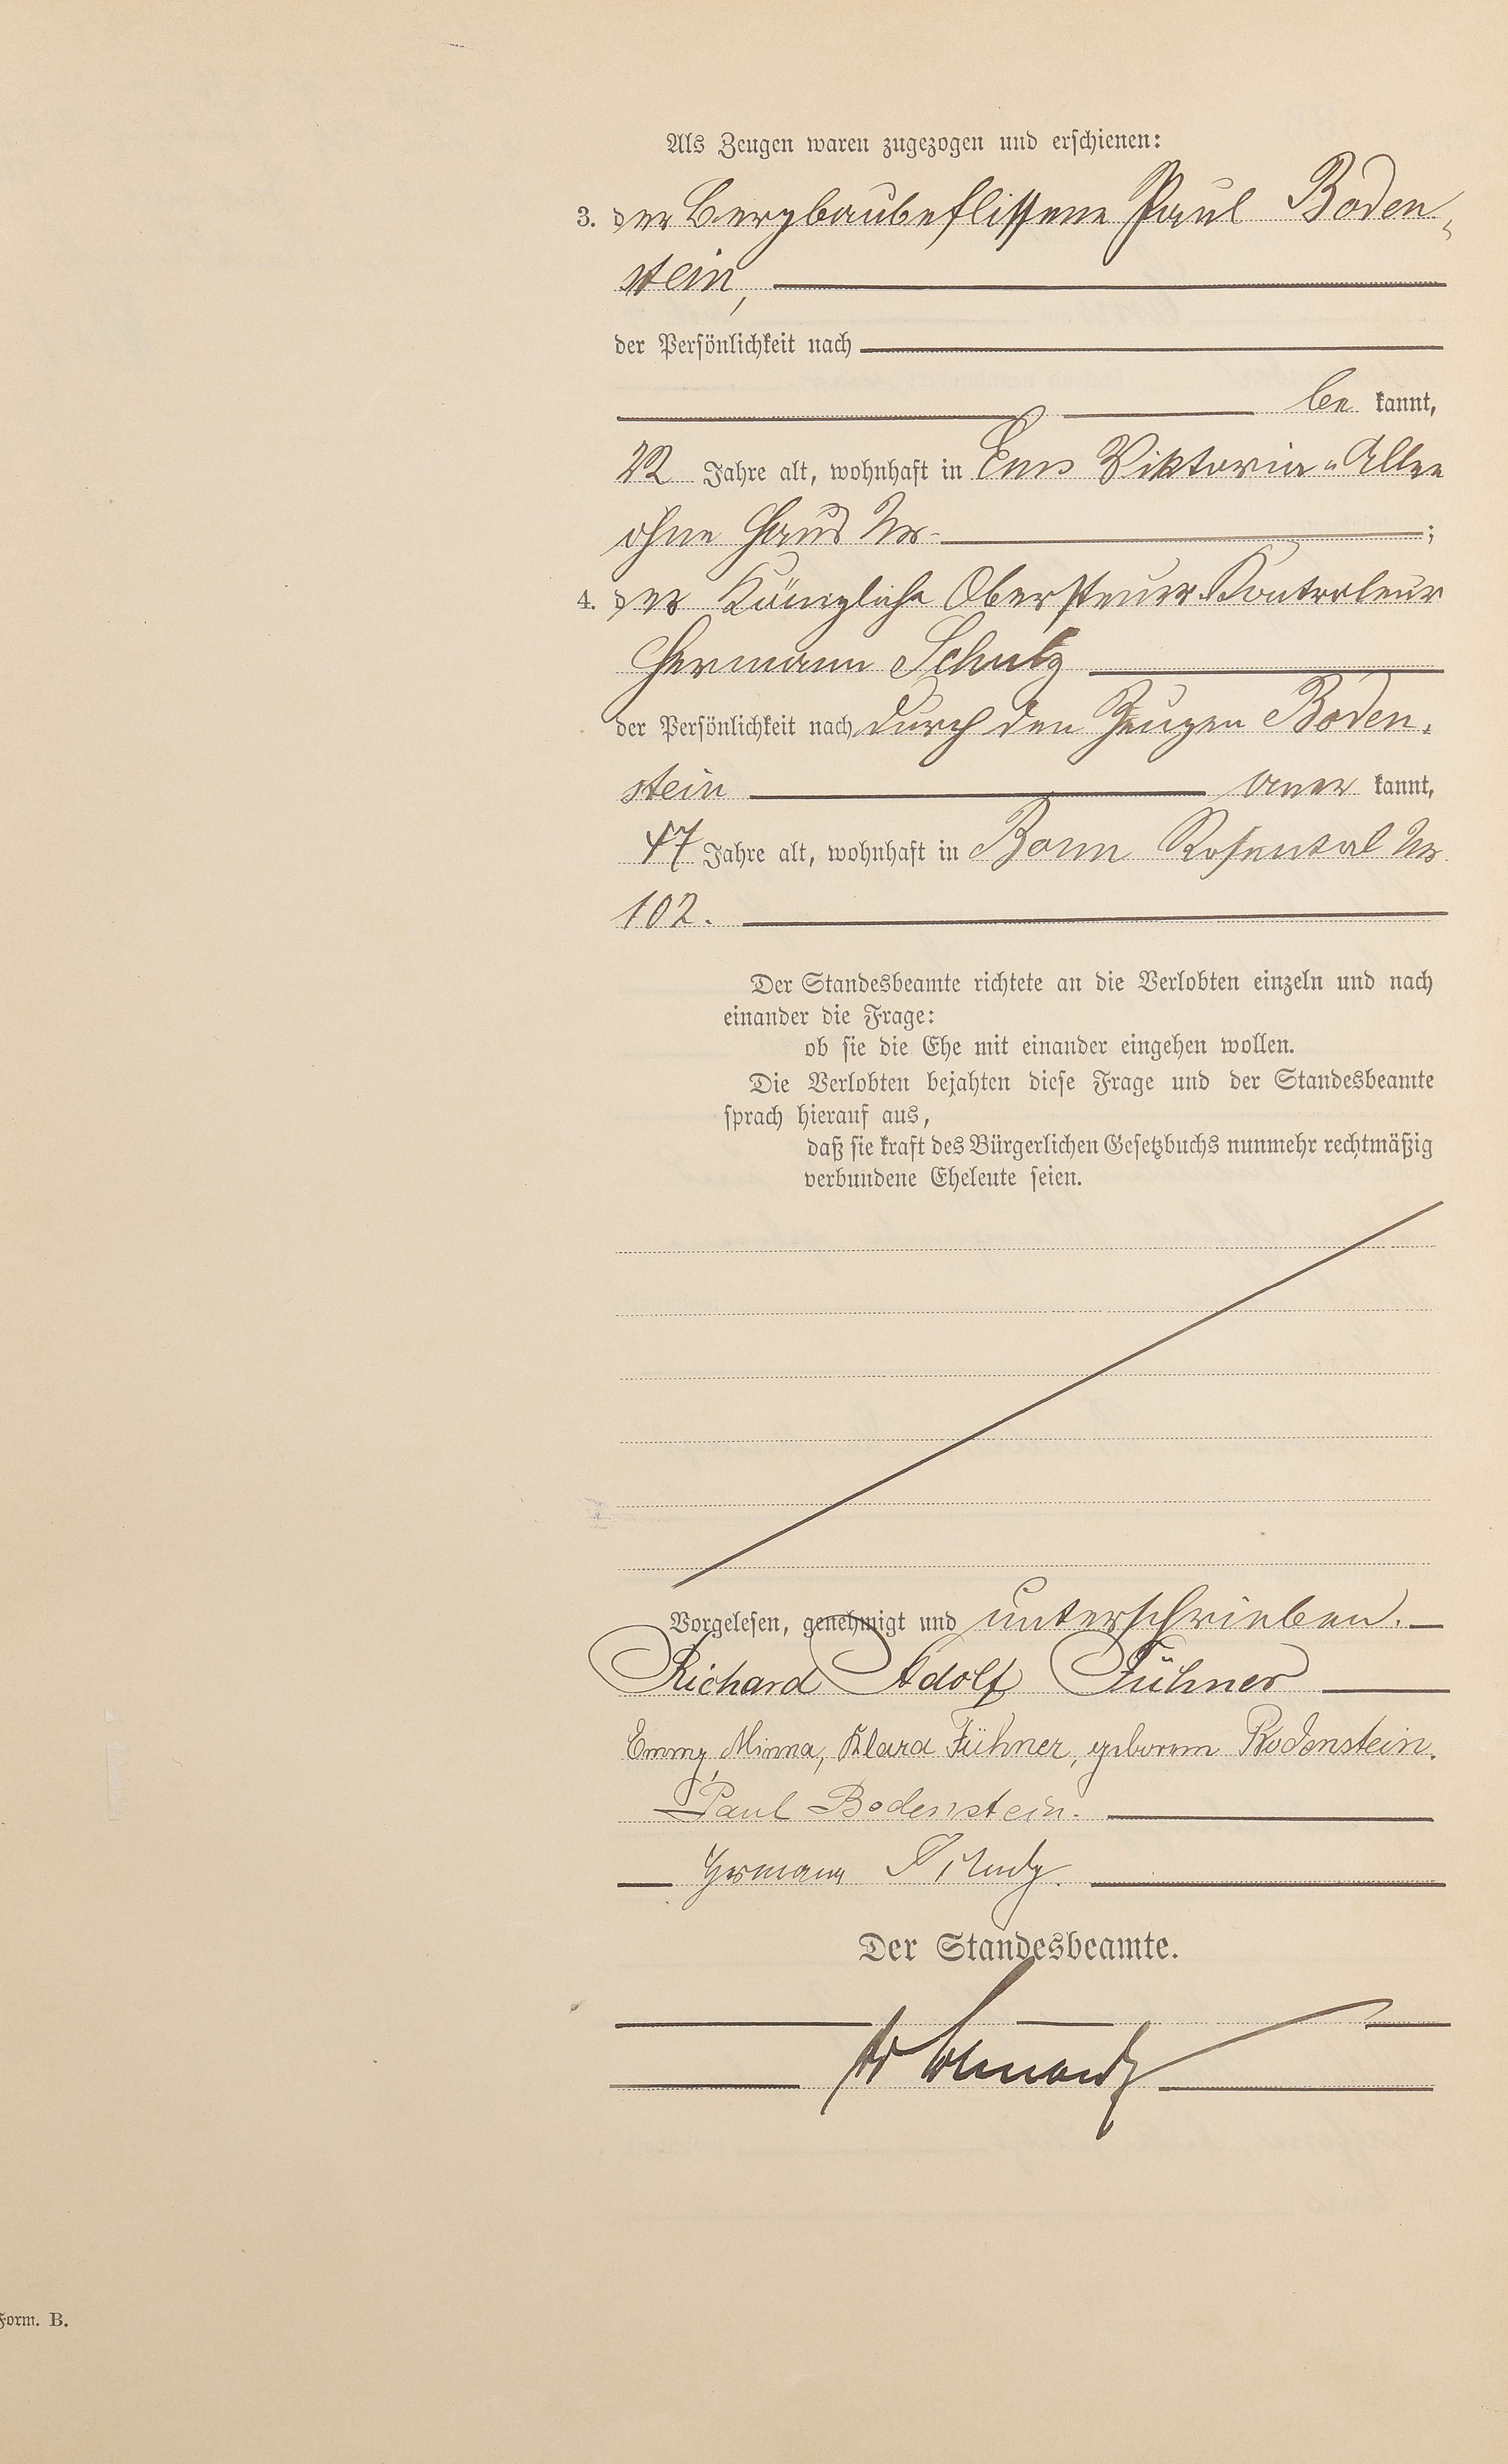 Als Zeugen waren zugezogen und erschienen:
3. der Bergbaubeflissene Paul Boden-
stein,
der Persönlichkeit nach
be kannt,
22 Jahre alt, wohnhaft in Ems Viktoria-Allee
ohne Haus Nr. ;
4. der Königliche Obersteuer-Kontroleur
Hermann Schulz
der Persönlichkeit nach durch den Zeugen Boden-
stein aner kannt,
47 Jahre alt, wohnhaft in Bonn Rosental Nr.
102.
Der Standesbeamte richtete an die Verlobten einzeln und nach
einander die Frage:
ob sie die Ehe mit einander eingehen wollen.
Die Verlobten bejahten diese Frage und der Standesbeamte
sprach hierauf aus,
daß sie kraft des Bürgerlichen Gesetzbuchs nunmehr rechtmäßig
verbundene Eheleute seien.
Vorgelesen, genehmigt und unterschrieben.
Richard Adolf Fühner
Emmy, Minna, Klara Fühner, geborene Bodenstein.
Paul Bodenstein.
Hermann Schulz.
Der Standesbeamte.
Form. B.